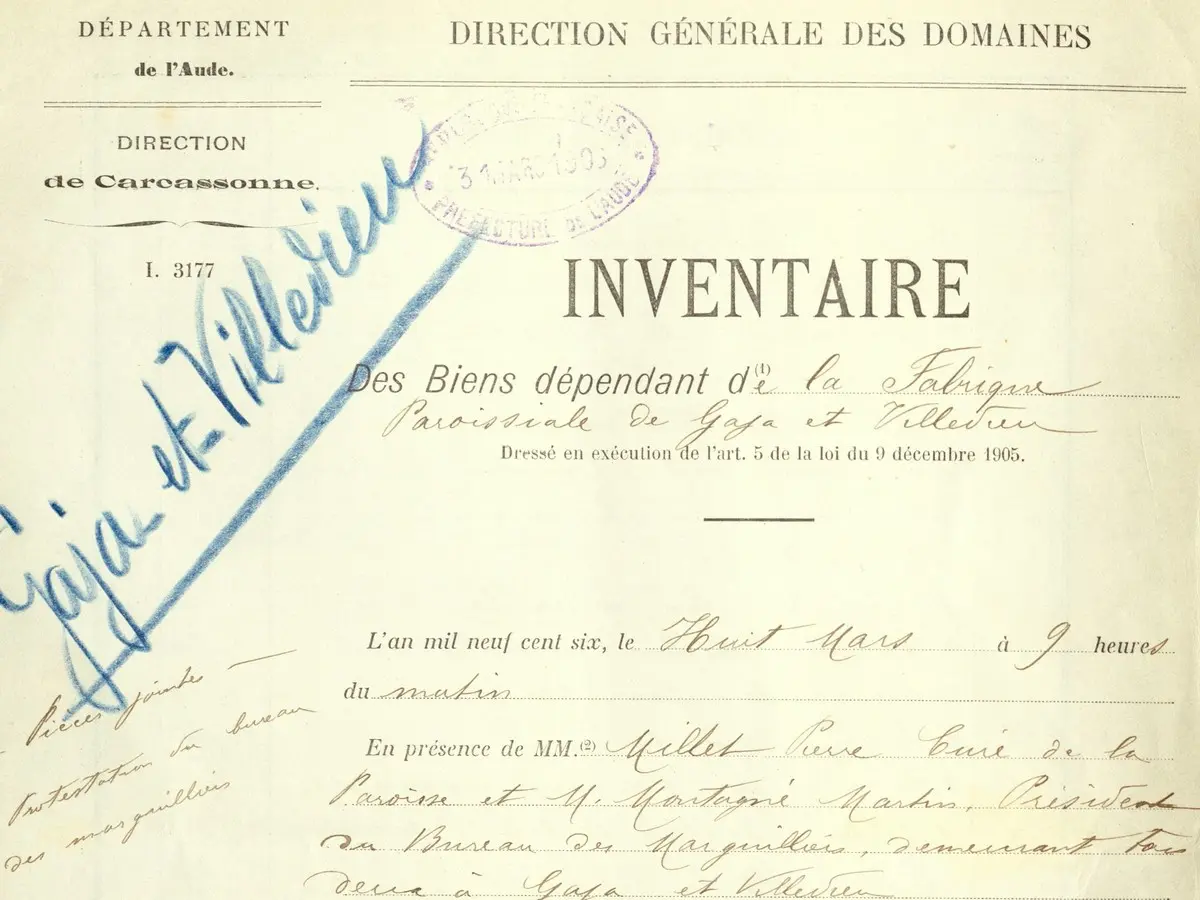 DÉPARTEMENT
de l'Aude.
DIRECTION
de Carcassonne.
I. 3177
DIRECTION GÉNÉRALE DES DOMAINES
PRÉFECTURE DE L'AUDE
Gaja et Villedieu
INVENTAIRE
Des Biens dépendant de (1) la Fabrique
Paroissiale de Gaja et Villedieu
Dressé en exécution de l'art. 5 de la loi du 9 décembre 1905.
L'an mil neuf cent six, le Huit Mars à 9 heures
du matin
En présence de MM. (2) Millet Pierre Curé de la
Paroisse et M. Montagné Martin, Président
du Bureau des Marguilliers, demeurant tous
deux à Gaja et Villedieu
Pièces jointes
Protestation du bureau
des marguilliers